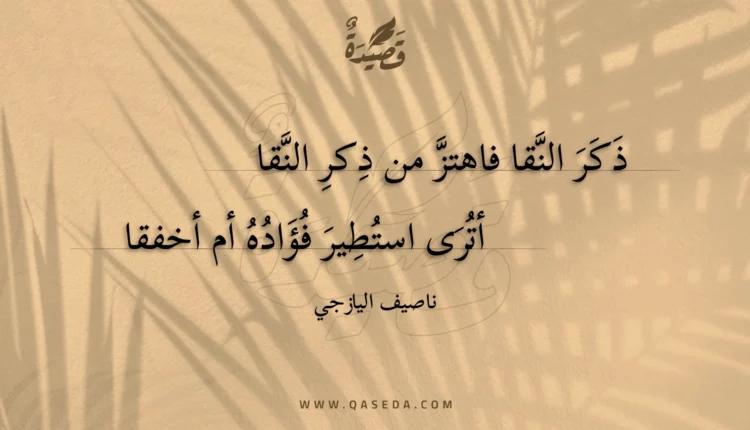 قَصِيْدَةٌ
ذَكَرَ النَّقا فاهتزَّ من ذِكرِ النَّقا
أتُرَى استُطِيرَ فُؤَادُهُ أم أخفقا
ناصيف اليازجي
WWW.QASEDA.COM